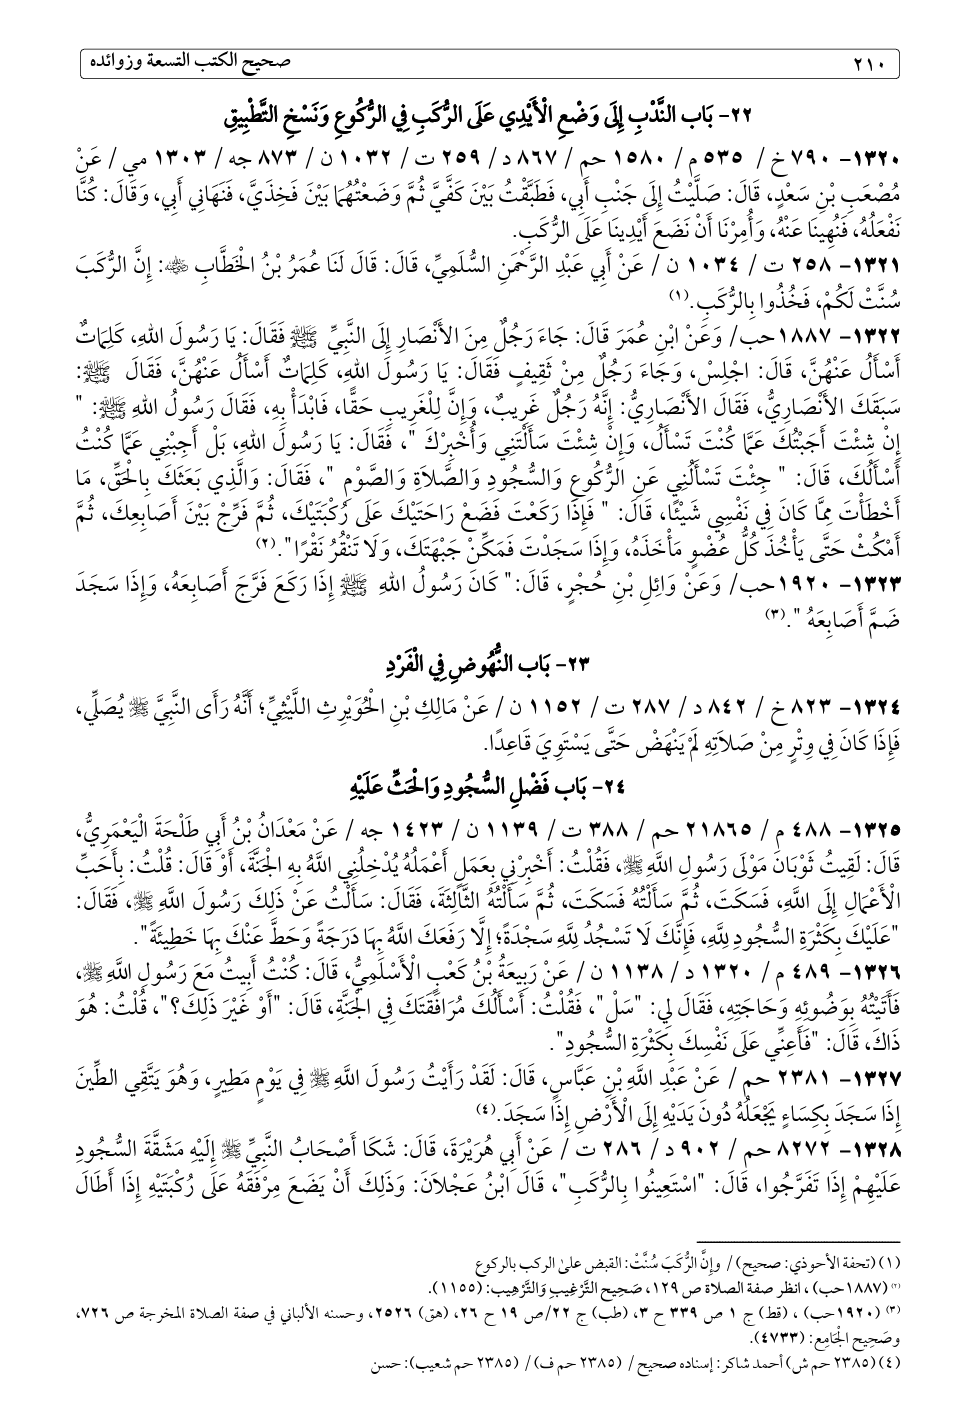 ٢١٠
صحيح الكتب التسعة وزوائده
٢٢- بَاب النَّدْبِ إِلَى وَضْعِ الْأَيْدِي عَلَى الرُّكَبِ فِي الرُّكُوعِ وَنَسْخِ التَّطْبِيقِ
١٣٢٠- ٧٩٠ خ/ ٥٣٥ م/ ١٥٨٠ حم/ ٨٦٧ د/ ٢٥٩ ت/ ١٠٣٢ ن/ ٨٧٣ جه/ ١٣٠٣ مي/ عَنْ
مُصْعَبِ بْنِ سَعْدٍ، قَالَ: صَلَّيْتُ إِلَى جَنْبِ أَبِي، فَطَبَّقْتُ بَيْنَ كَفَّيَّ ثُمَّ وَضَعْتُهُمَا بَيْنَ فَخِذَيَّ، فَنَهَانِي أَبِي، وَقَالَ: كُنَّا
نَفْعَلُهُ، فَنُهِينَا عَنْهُ، وَأُمِرْنَا أَنْ نَضَعَ أَيْدِينَا عَلَى الرُّكَبِ.
١٣٢١- ٢٥٨ ت/ ١٠٣٤ ن/ عَنْ أَبِي عَبْدِ الرَّحْمَنِ السُّلَمِيِّ، قَالَ: قَالَ لَنَا عُمَرُ بْنُ الْخَطَّابِ ﵁: إِنَّ الرُّكَبَ
سُنَّتْ لَكُمْ، فَخُذُوا بِالرُّكَبِ.(١)
١٣٢٢- ١٨٨٧حب/ وَعَنْ ابْنِ عُمَرَ قَالَ: جَاءَ رَجُلٌ مِنَ الأَنْصَارِ إِلَى النَّبِيِّ ﷺ فَقَالَ: يَا رَسُولَ اللهِ، كَلِمَاتٌ
أَسْأَلُ عَنْهُنَّ، قَالَ: اجْلِسْ، وَجَاءَ رَجُلٌ مِنْ ثَقِيفٍ فَقَالَ: يَا رَسُولَ اللهِ، كَلِمَاتٌ أَسْأَلُ عَنْهُنَّ، فَقَالَ ﷺ:
سَبَقَكَ الأَنْصَارِيُّ، فَقَالَ الأَنْصَارِيُّ: إِنَّهُ رَجُلٌ غَرِيبٌ، وَإِنَّ لِلْغَرِيبِ حَقًّا، فَابْدَأْ بِهِ، فَقَالَ رَسُولُ اللهِ ﷺ: "
إِنْ شِئْتَ أَجَبْتُكَ عَمَّا كُنْتَ تَسْأَلُ، وَإِنْ شِئْتَ سَأَلْتَنِي وَأُخْبِرْكَ "، فَقَالَ: يَا رَسُولَ اللهِ، بَلْ أَجِبْنِي عَمَّا كُنْتُ
أَسْأَلُكَ، قَالَ: " جِئْتَ تَسْأَلُنِي عَنِ الرُّكُوعِ وَالسُّجُودِ وَالصَّلَاةِ وَالصَّوْمِ "، فَقَالَ: وَالَّذِي بَعَثَكَ بِالْحَقِّ، مَا
أَخْطَأْتَ مِمَّا كَانَ فِي نَفْسِي شَيْئًا، قَالَ: " فَإِذَا رَكَعْتَ فَضَعْ رَاحَتَيْكَ عَلَى رُكْبَتَيْكَ، ثُمَّ فَرِّجْ بَيْنَ أَصَابِعِكَ، ثُمَّ
أَمْكُثْ حَتَّى يَأْخُذَ كُلُّ عُضْوٍ مَأْخَذَهُ، وَإِذَا سَجَدْتَ فَمَكِّنْ جَبْهَتَكَ، وَلَا تَنْقُرُ نَقْرًا".(٢)
١٣٢٣- ١٩٢٠حب/ وَعَنْ وَائِلِ بْنِ حُجْرٍ، قَالَ:" كَانَ رَسُولُ اللهِ ﷺ إِذَا رَكَعَ فَرَّجَ أَصَابِعَهُ، وَإِذَا سَجَدَ
ضَمَّ أَصَابِعَهُ ".(٣)
٢٣- بَاب النُّهُوضِ فِي الْفَرْدِ
١٣٢٤- ٨٢٣ خ/ ٨٤٢ د/ ٢٨٧ ت/ ١١٥٢ ن/ عَنْ مَالِكِ بْنِ الْحُوَيْرِثِ اللَّيْثِيِّ؛ أَنَّهُ رَأَى النَّبِيَّ ﷺ يُصَلِّي،
فَإِذَا كَانَ فِي وِتْرٍ مِنْ صَلاَتِهِ لَمْ يَنْهَضْ حَتَّى يَسْتَوِيَ قَاعِدًا.
٢٤- بَاب فَضْلِ السُّجُودِ وَالْحَثِّ عَلَيْهِ
١٣٢٥- ٤٨٨ م/ ٢١٨٦٥ حم/ ٣٨٨ ت/ ١١٣٩ ن/ ١٤٢٣ جه/ عَنْ مَعْدَانُ بْنُ أَبِي طَلْحَةَ الْيَعْمَرِيُّ،
قَالَ: لَقِيتُ ثَوْبَانَ مَوْلَى رَسُولِ اللَّهِ ﷺ، فَقُلْتُ: أَخْبِرْنِي بِعَمَلٍ أَعْمَلُهُ يُدْخِلُنِي اللَّهُ بِهِ الْجَنَّةَ، أَوْ قَالَ: قُلْتُ: بِأَحَبِّ
الْأَعْمَالِ إِلَى اللَّهِ، فَسَكَتَ، ثُمَّ سَأَلْتُهُ فَسَكَتَ، ثُمَّ سَأَلْتُهُ الثَّالِثَةَ، فَقَالَ: سَأَلْتُ عَنْ ذَلِكَ رَسُولَ اللَّهِ ﷺ، فَقَالَ:
"عَلَيْكَ بِكَثْرَةِ السُّجُودِ لِلَّهِ، فَإِنَّكَ لَا تَسْجُدُ لِلَّهِ سَجْدَةً؛ إِلَّا رَفَعَكَ اللَّهُ بِهَا دَرَجَةً وَحَطَّ عَنْكَ بِهَا خَطِيئَةً".
١٣٢٦- ٤٨٩ م/ ١٣٢٠ د/ ١١٣٨ ن/ عَنْ رَبِيعَةُ بْنُ كَعْبٍ الْأَسْلَمِيُّ، قَالَ: كُنْتُ أَبِيتُ مَعَ رَسُولِ اللَّهِ ﷺ،
فَأَتَيْتُهُ بِوَضُوئِهِ وَحَاجَتِهِ، فَقَالَ لِي: "سَلْ"، فَقُلْتُ: أَسْأَلُكَ مُرَافَقَتَكَ فِي الْجَنَّةِ، قَالَ: "أَوْ غَيْرَ ذَلِكَ؟"، قُلْتُ: هُوَ
ذَاكَ، قَالَ: "فَأَعِنِّي عَلَى نَفْسِكَ بِكَثْرَةِ السُّجُودِ".
١٣٢٧- ٢٣٨١ حم/ عَنْ عَبْدِ اللَّهِ بْنِ عَبَّاسٍ، قَالَ: لَقَدْ رَأَيْتُ رَسُولَ اللَّهِ ﷺ فِي يَوْمٍ مَطِيرٍ، وَهُوَ يَتَّقِي الطِّينَ
إِذَا سَجَدَ بِكِسَاءٍ يَجْعَلُهُ دُونَ يَدَيْهِ إِلَى الْأَرْضِ إِذَا سَجَدَ.(٤)
١٣٢٨- ٨٢٧٢ حم/ ٩٠٢ د/ ٢٨٦ ت/ عَنْ أَبِي هُرَيْرَةَ، قَالَ: شَكَا أَصْحَابُ النَّبِيِّ ﷺ إِلَيْهِ مَشَقَّةَ السُّجُودِ
عَلَيْهِمْ إِذَا تَفَرَّجُوا، قَالَ: "اسْتَعِينُوا بِالرُّكَبِ"، قَالَ ابْنُ عَجْلاَنَ: وَذَلِكَ أَنْ يَضَعَ مِرْفَقَهُ عَلَى رُكْبَتَيْهِ إِذَا أَطَالَ
(١) (تحفة الأحوذي: صحيح)/ وإِنَّ الرُّكَبَ سُنَّتْ: القبض على الركب بالركوع
(٢) (١٨٨٧حب)، انظر صفة الصلاة ص ١٢٩، صَحِيح التَّرْغِيبِ وَالتَّرْهِيب: (١١٥٥).
(٣) (١٩٢٠حب)، (قط) ج ١ ص ٣٣٩ ح ٣، (طب) ج ٢٢/ص ١٩ ح ٢٦، (هق) ٢٥٢٦، وحسنه الألباني في صفة الصلاة المخرجة ص ٧٢٦،
وصَحِيح الْجَامِع: (٤٧٣٣).
(٤) (٢٣٨٥ حم ش) أحمد شاكر: إسناده صحيح/ (٢٣٨٥ حم ف)/ (٢٣٨٥ حم شعيب): حسن